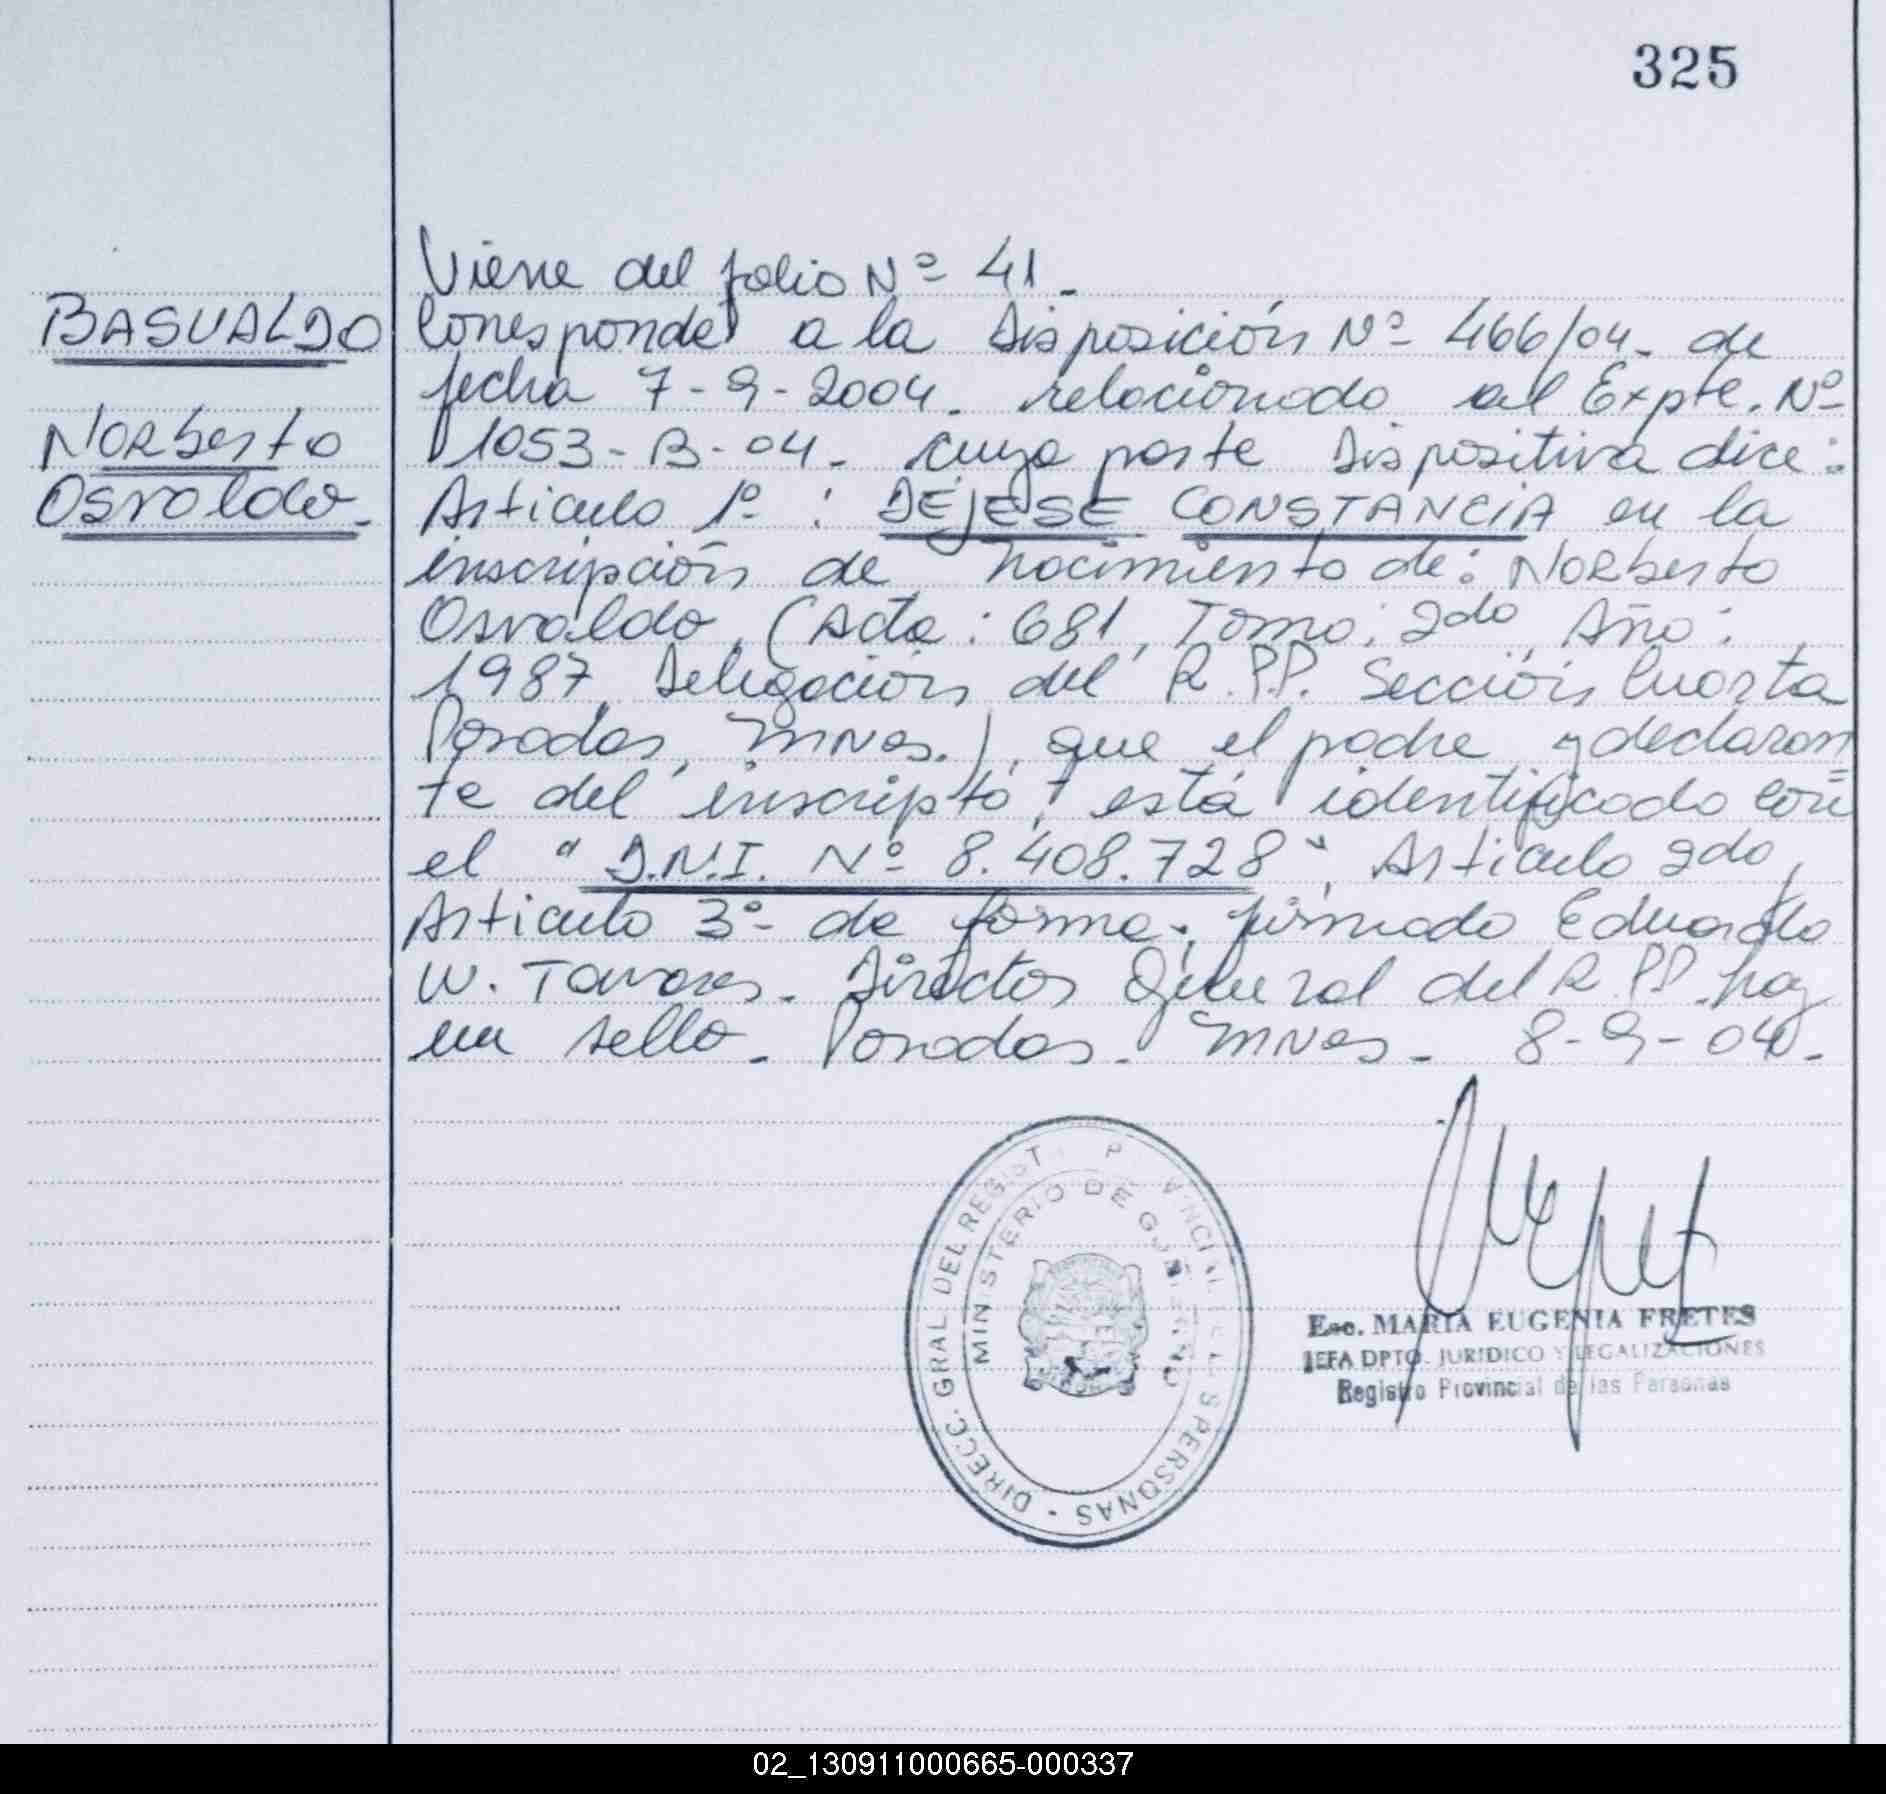 325
BASUALDO
Norberto
Osvaldo.
Viene del folio Nº 41.
Corresponde a la Disposición Nº 466/04. de
fecha 7-9-2004. relacionado al Expte. Nº
1053-B-04. cuya parte Dispositiva dice:
Articulo 1º: DÉJESE CONSTANCIA en la
inscripción de nacimiento de: Norberto
Osvaldo, (Acta: 681, Tomo: 2do, Año:
1987, Delegación del R.P.P. Sección Cuarta
Posadas, Mnes.), que el padre y declaran
te del inscripto, está identificado con
el "D.N.I. Nº 8.408.728", Articulo 2do,
Articulo 3º- de forma. firmado Eduardo
W. Tavares. Director General del R.P.P. hay
un sello. Posadas. Mnes. 8-9-04.
DIRECC. GRAL. DEL REGIST P VINCI L PERSONAS
MINISTERIO DE GOBIERNO
Esc. MARIA EUGENIA FRETES
JEFA DPTO. JURIDICO Y LEGALIZACIONES
Registro Provincial de las Personas
02_130911000665-000337